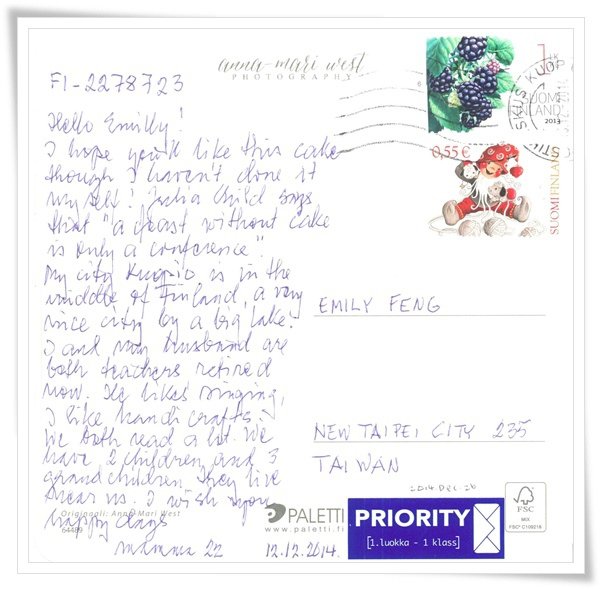 anna-mari west
PHOTOGRAPHY
FI-2278723
Hello Emilky!
I hope you'll like this cake
though I haven't done it
myself! Julia Child says
that "a feast without cake
is only a conference".
My city Kuopio is in the
middle of Finland, a very
nice city by a big lake!
I and my husband are
both teachers retired
now. He likes singing,
I like handicrafts.
We both read a lot. We
have 2 children and 3
grandchildren. They live
near us. I wish you
happy days
mamma 22 12.12.2014.
1 LK
SUOMI
FINLAND
2013
0,55 €
SUOMI FINLAND
EMILY FENG
NEW TAIPEI CITY 235
TAIWAN
2014 DEC. 26
Originaali: Anna Mari West
64489
PALETTI
www.paletti.fi
PRIORITY
[1.luokka - 1 klass]
FSC
MIX
FSC® C109216